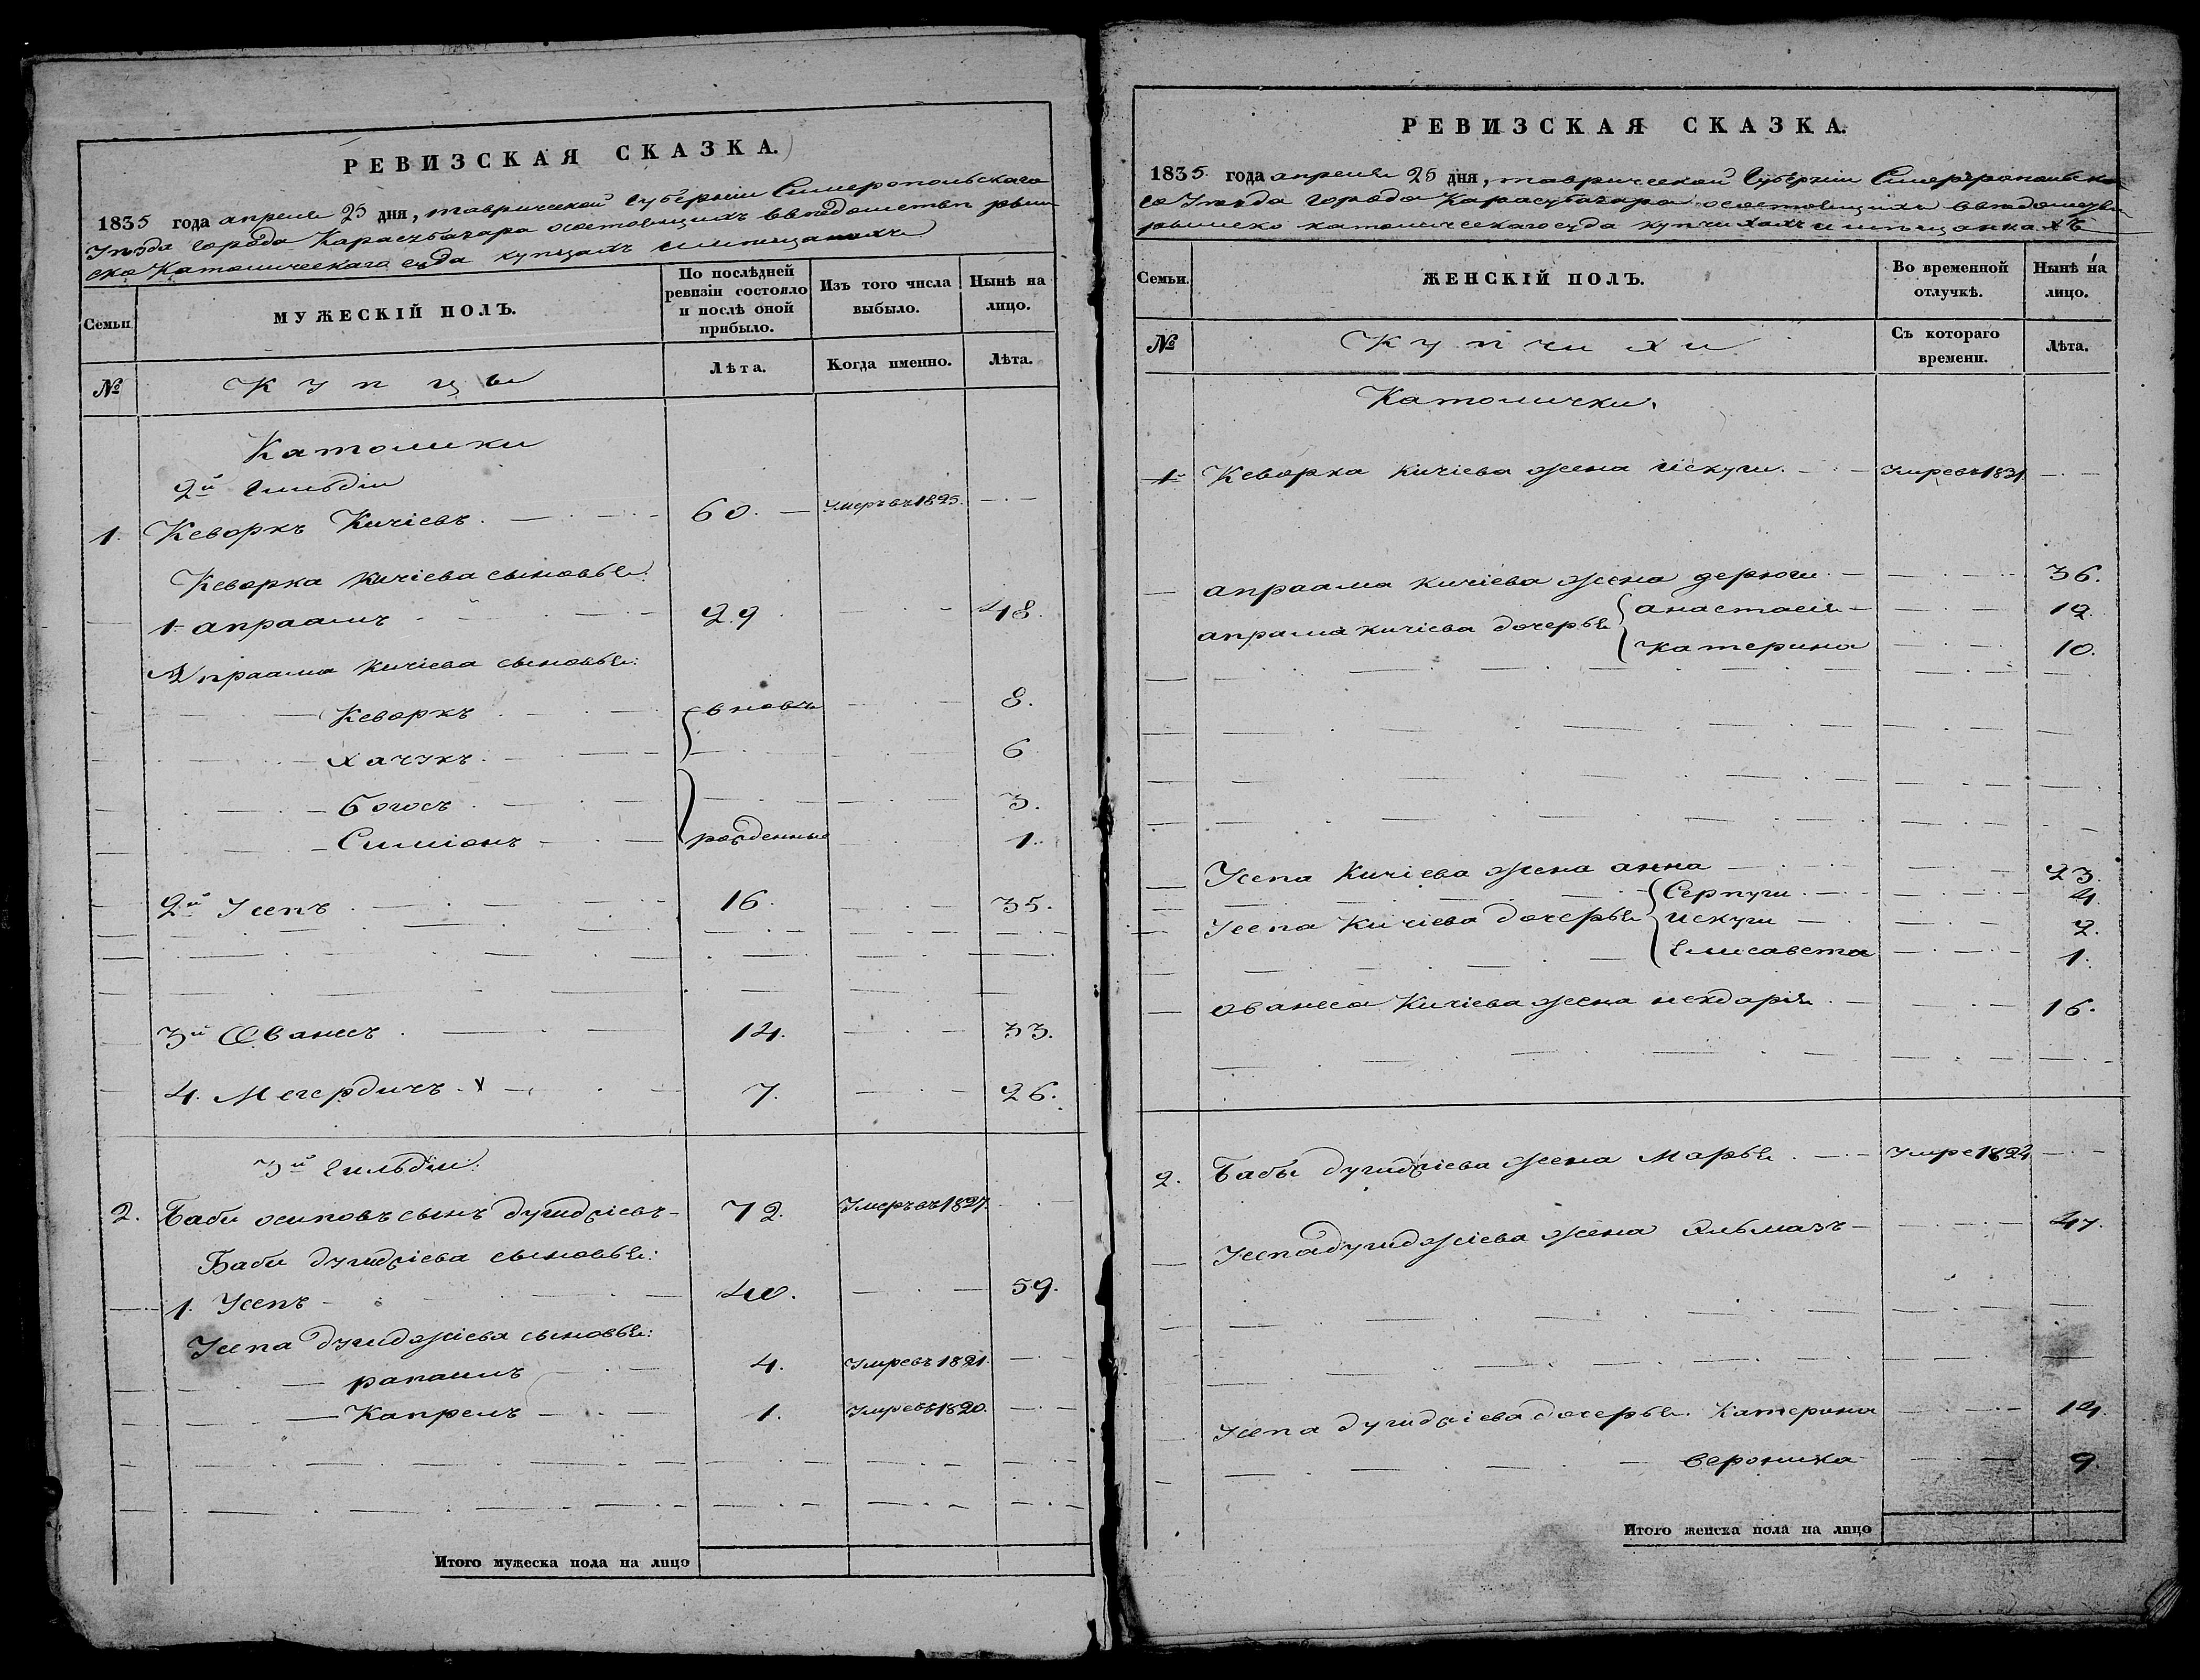 РЕВИЗСКАЯ СКАЗКА.
1835 года апреля 25 дня, таврической Губернии Симферопольскаго
Уезда города Карасубазара о состоящихъ в ведомстве рим
ско Католическаго суда купцахъ и мещанахъ
Семьи
МУЖЕСКІЙ ПОЛЪ.
По послѣдней ревизіи состояло и послѣ оной прибыло.
Изъ того числа выбыло.
Нынѣ на лицо.
№
Купцы
Лѣта.
Когда именно.
Лѣта.
Католики
2й Гильдіи
1. Кеворкъ Кичіевъ. 60. Умеръ въ 1825.
Кеворка Кичіева сыновья:
1. апраамъ 29 48.
Апраама Кичіева сыновья:
Кеворкъ вновь 8.
Хачукъ 6
Богосъ 3.
Симіонъ рожденные 1.
2й Усепъ 16. 35.
3й Ованесъ 14. 33.
4. Мегердичъ 7. 26.
3й Гильдіи:
2. Баби осиповъ сынъ 72. Умеръ въ 1827.
Баби сыновья:
1. Усепъ 40. 59.
Усепа сыновья:
4. Умре въ 1821.
Капрелъ 1. Умре въ 1820.
Итого мужеска пола на лицо
РЕВИЗСКАЯ СКАЗКА.
1835 года апреля 25 дня, таврической Губерніи Симферопольска
го Уезда города Карасубазара о состоящихъ в ведомстве
римско католическаго суда купчихахъ и мещанкахъ
Семьи.
ЖЕНСКІЙ ПОЛЪ.
Во временной отлучкѣ.
Нынѣ на лицо.
№
Купчихи
Съ котораго времени.
Лѣта.
Католички.
1. Кеворка Кичіева жена Искуги. Умре въ 1831
апраама Кичіева жена 36.
апрама кичіева дочерья анастасія 12.
катерина 10.
Усепа Кичіева жена анна 23.
Серпуги 4.
Усепа Кичіева дочерья Искуги 2.
Елисавета 1.
Ованеса Кичіева жена некдарія 16.
2. Бабы жена Марья. Умре 1824
Усепа жена Эльмазъ 47.
Усепа дочерья. Катерина 14.
вероника 9.
Итого женска пола на лицо